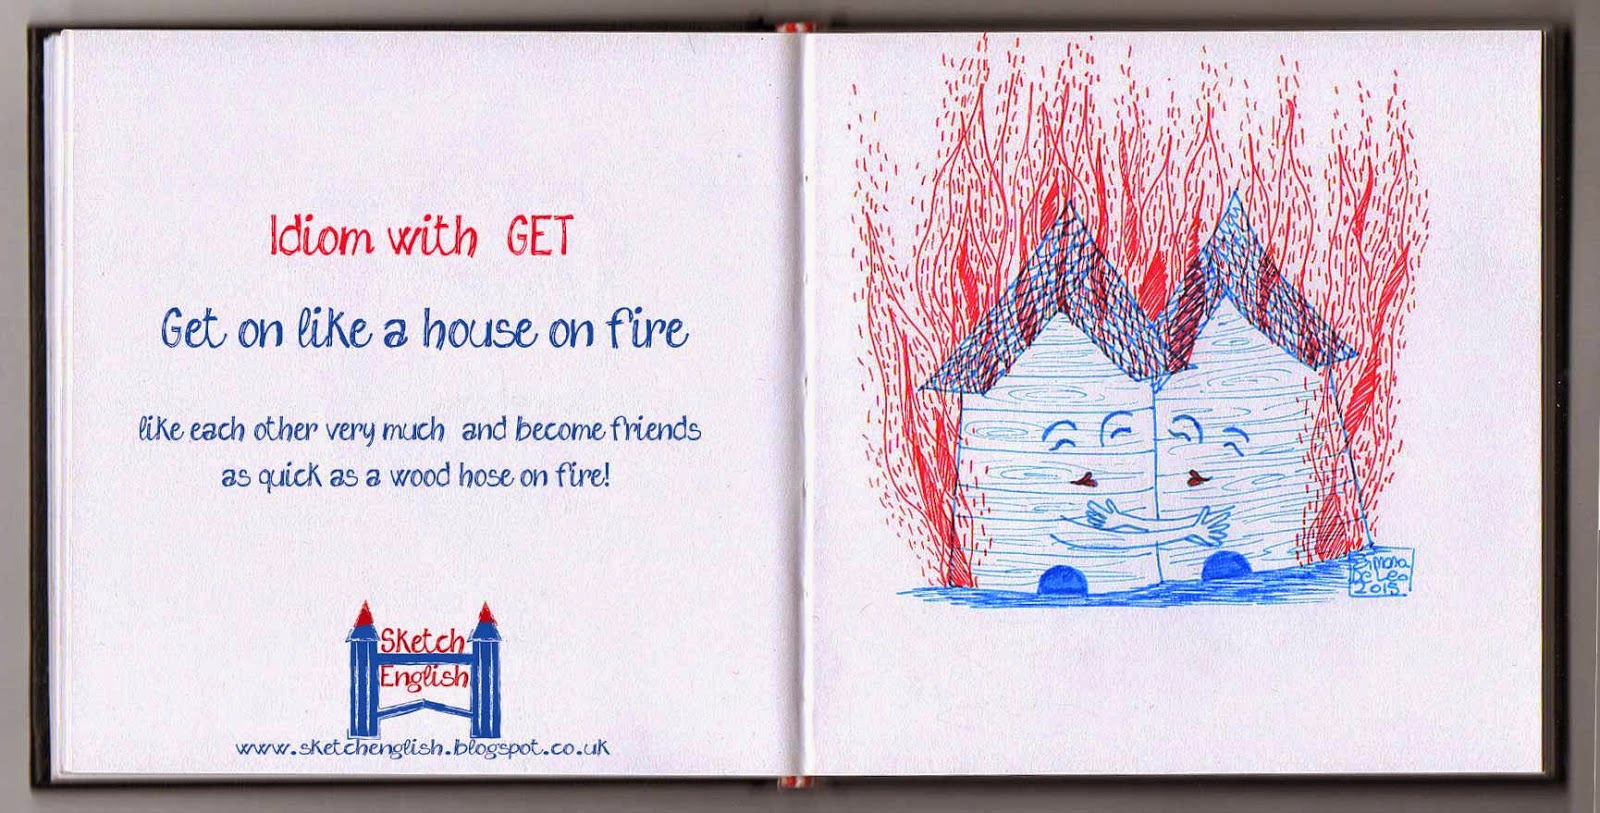 Idiom with GET
Get on like a house on fire
like each other very much and become friends
as quick as a wood hose on fire!
Sketch
English
www.sketchenglish.blogspot.co.uk
Simona
De Leo
2015